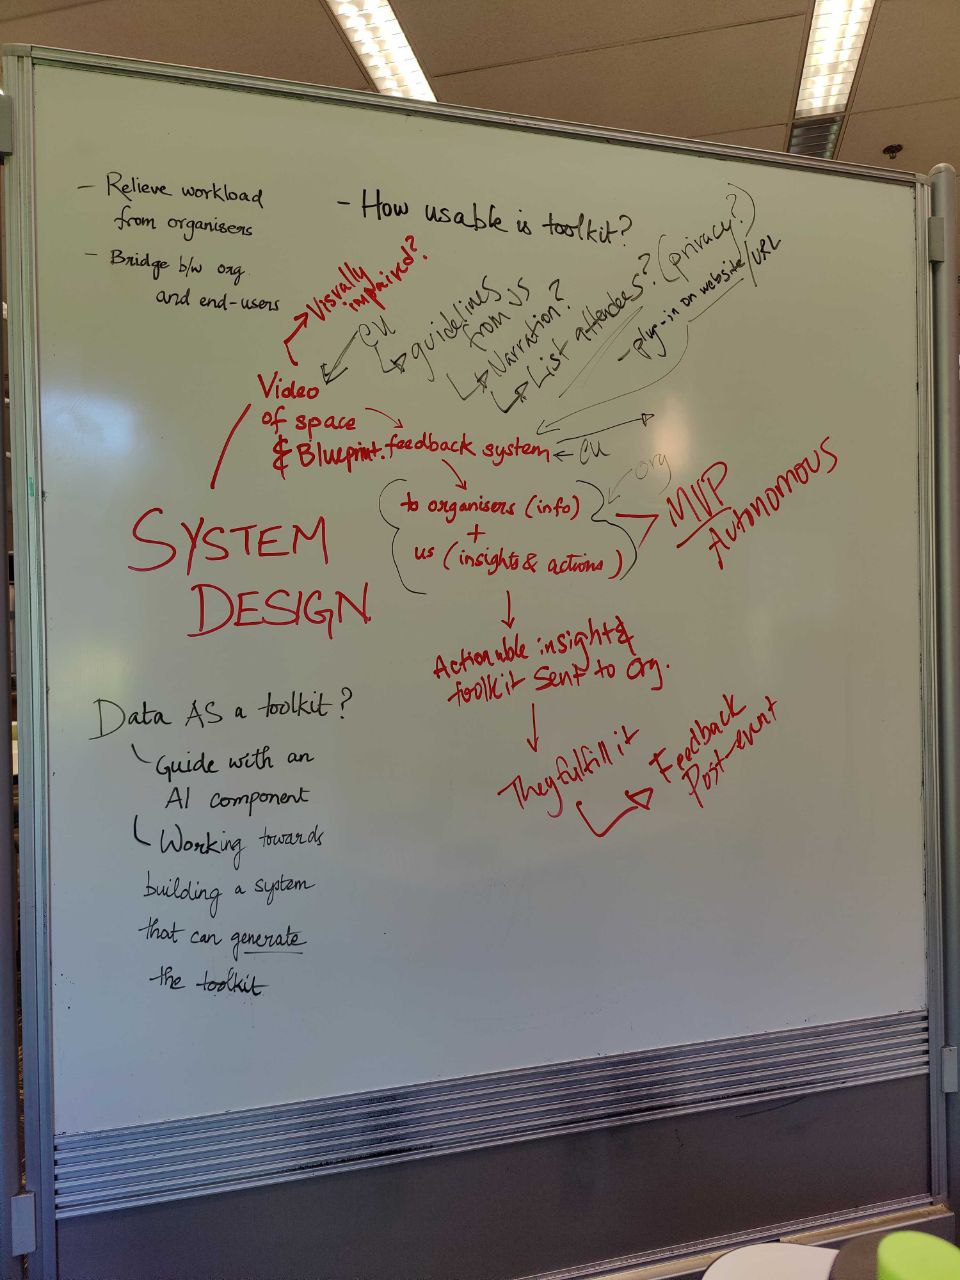 - Relieve workload
from organisers
- Bridge b/w org
and end-users
- How usable is toolkit?
Visually
impaired?
EU
guidelines
from us
Narration?
List attendees? (privacy?)
- plug-in on website/URL
Video
of space
& Blueprint.
feedback system
EU
org
to organisers (info)
+
us (insights & actions)
MVP
Autonomous
SYSTEM
DESIGN
Actionable insights &
toolkit sent to org.
They fulfill it
Feedback
Post-event
Data AS a toolkit?
Guide with an
AI component
Working towards
building a system
that can generate
the toolkit